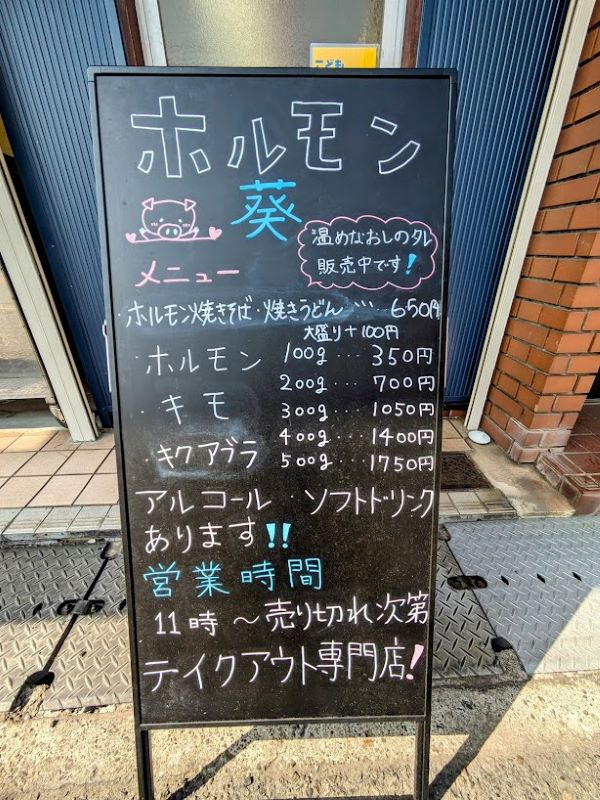 こども
ホルモン
葵
温めなおしのタレ
販売中です!
メニュー
・ホルモン焼きそば・焼きうどん…650円
大盛り+100円
・ホルモン 100g…350円
200g…700円
・キモ 300g…1050円
400g…1400円
・キクアブラ 500g…1750円
アルコール・ソフトドリンク
あります!!
営業時間
11時~売り切れ次第
テイクアウト専門店!